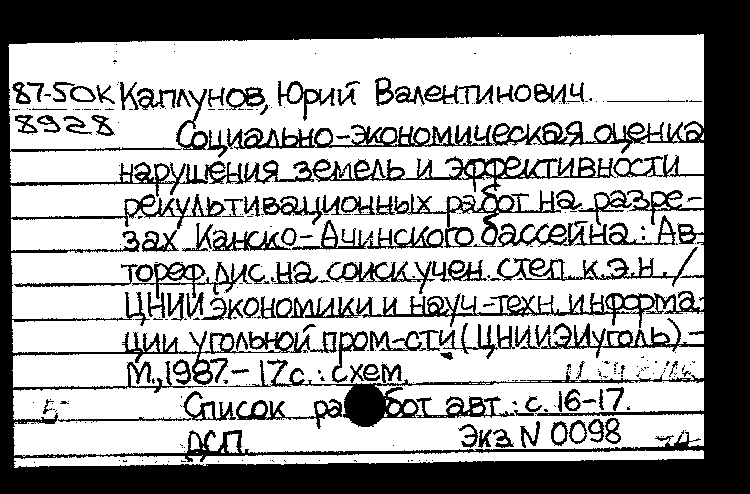 87-50К Каплунов, Юрий Валентинович.
8928 Социально-экономическая оценка
нарушения земель и эффективности
рекультивационных работ на разре-
зах Канско-Ачинского бассейна: Ав-
тореф. дис. на соиск. учен. степ. к.э.н. /
ЦНИИ экономики и науч.-техн. информа-
ции угольной пром-сти (ЦНИИЭИуголь). -
М., 1987. - 17 с.: схем.
Б Список работ авт.: с. 16-17.
ДСП. Экз N 0098